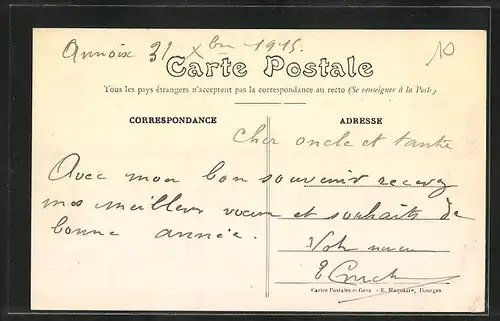 Annoix 31 Xbre 1915.
10
Carte Postale
Tous les pays étrangers n'acceptent pas la correspondance au recto (Se renseigner à la Poste)
CORRESPONDANCE
ADRESSE
Cher oncle et tante
Avec mon bon souvenir recevez
mes meilleurs voeux et souhaits de
bonne année.
Votre neveu
Cartes Postales en Gros - E. Maquaire, Bourges